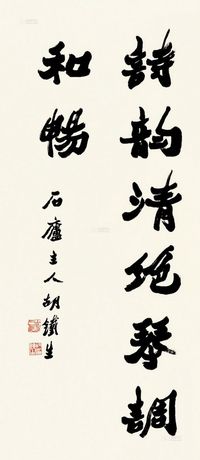 詩韵清絕琴調
和暢
石廬主人胡鐵生